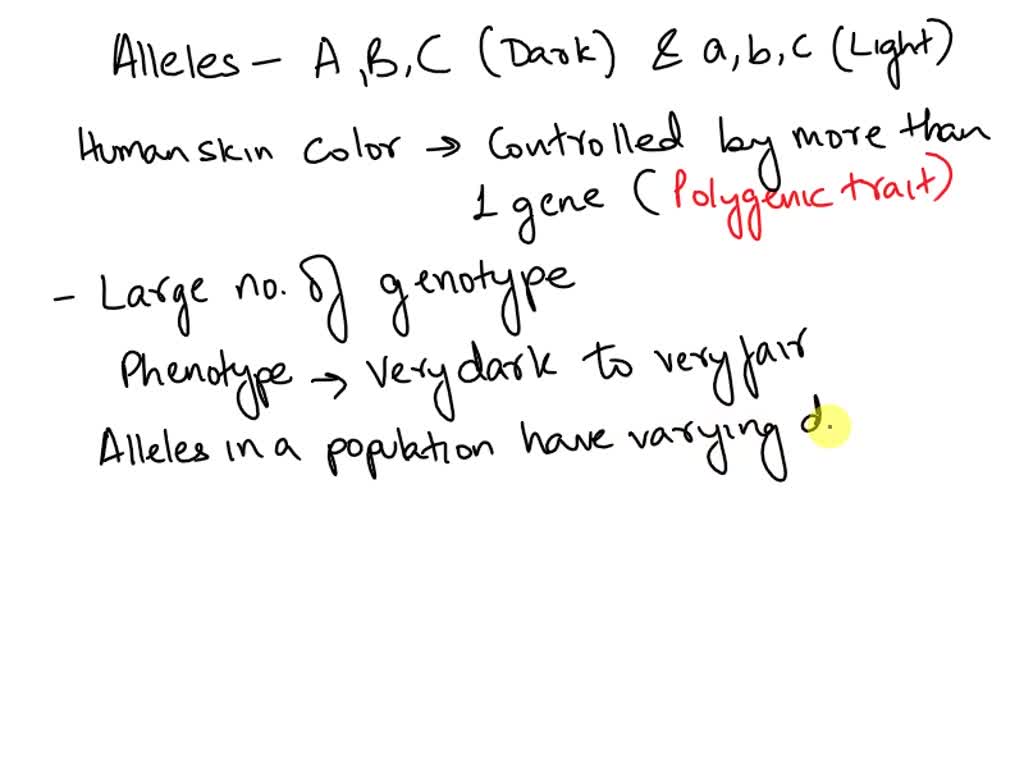 Alleles - A, B, C (Dark) & a, b, c (Light)
Human skin color → Controlled by more than
1 gene (Polygenic trait)
- Large no. of genotype
Phenotype → Very dark to very fair
Alleles in a population have varying d.